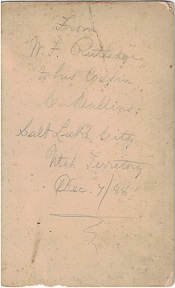 From
W. F. Rutledge
to his Cousin
Mullins.
Salt Lake City
Utah Territory
Dec. 7/88